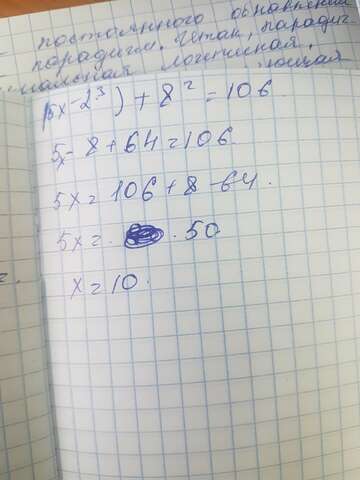 постоянного обновления
парадигм. Итак, паради-
логической,
(5x-2³)+8²=106
5x-8+64=106.
5x=106+8-64.
5x= 50
x=10.